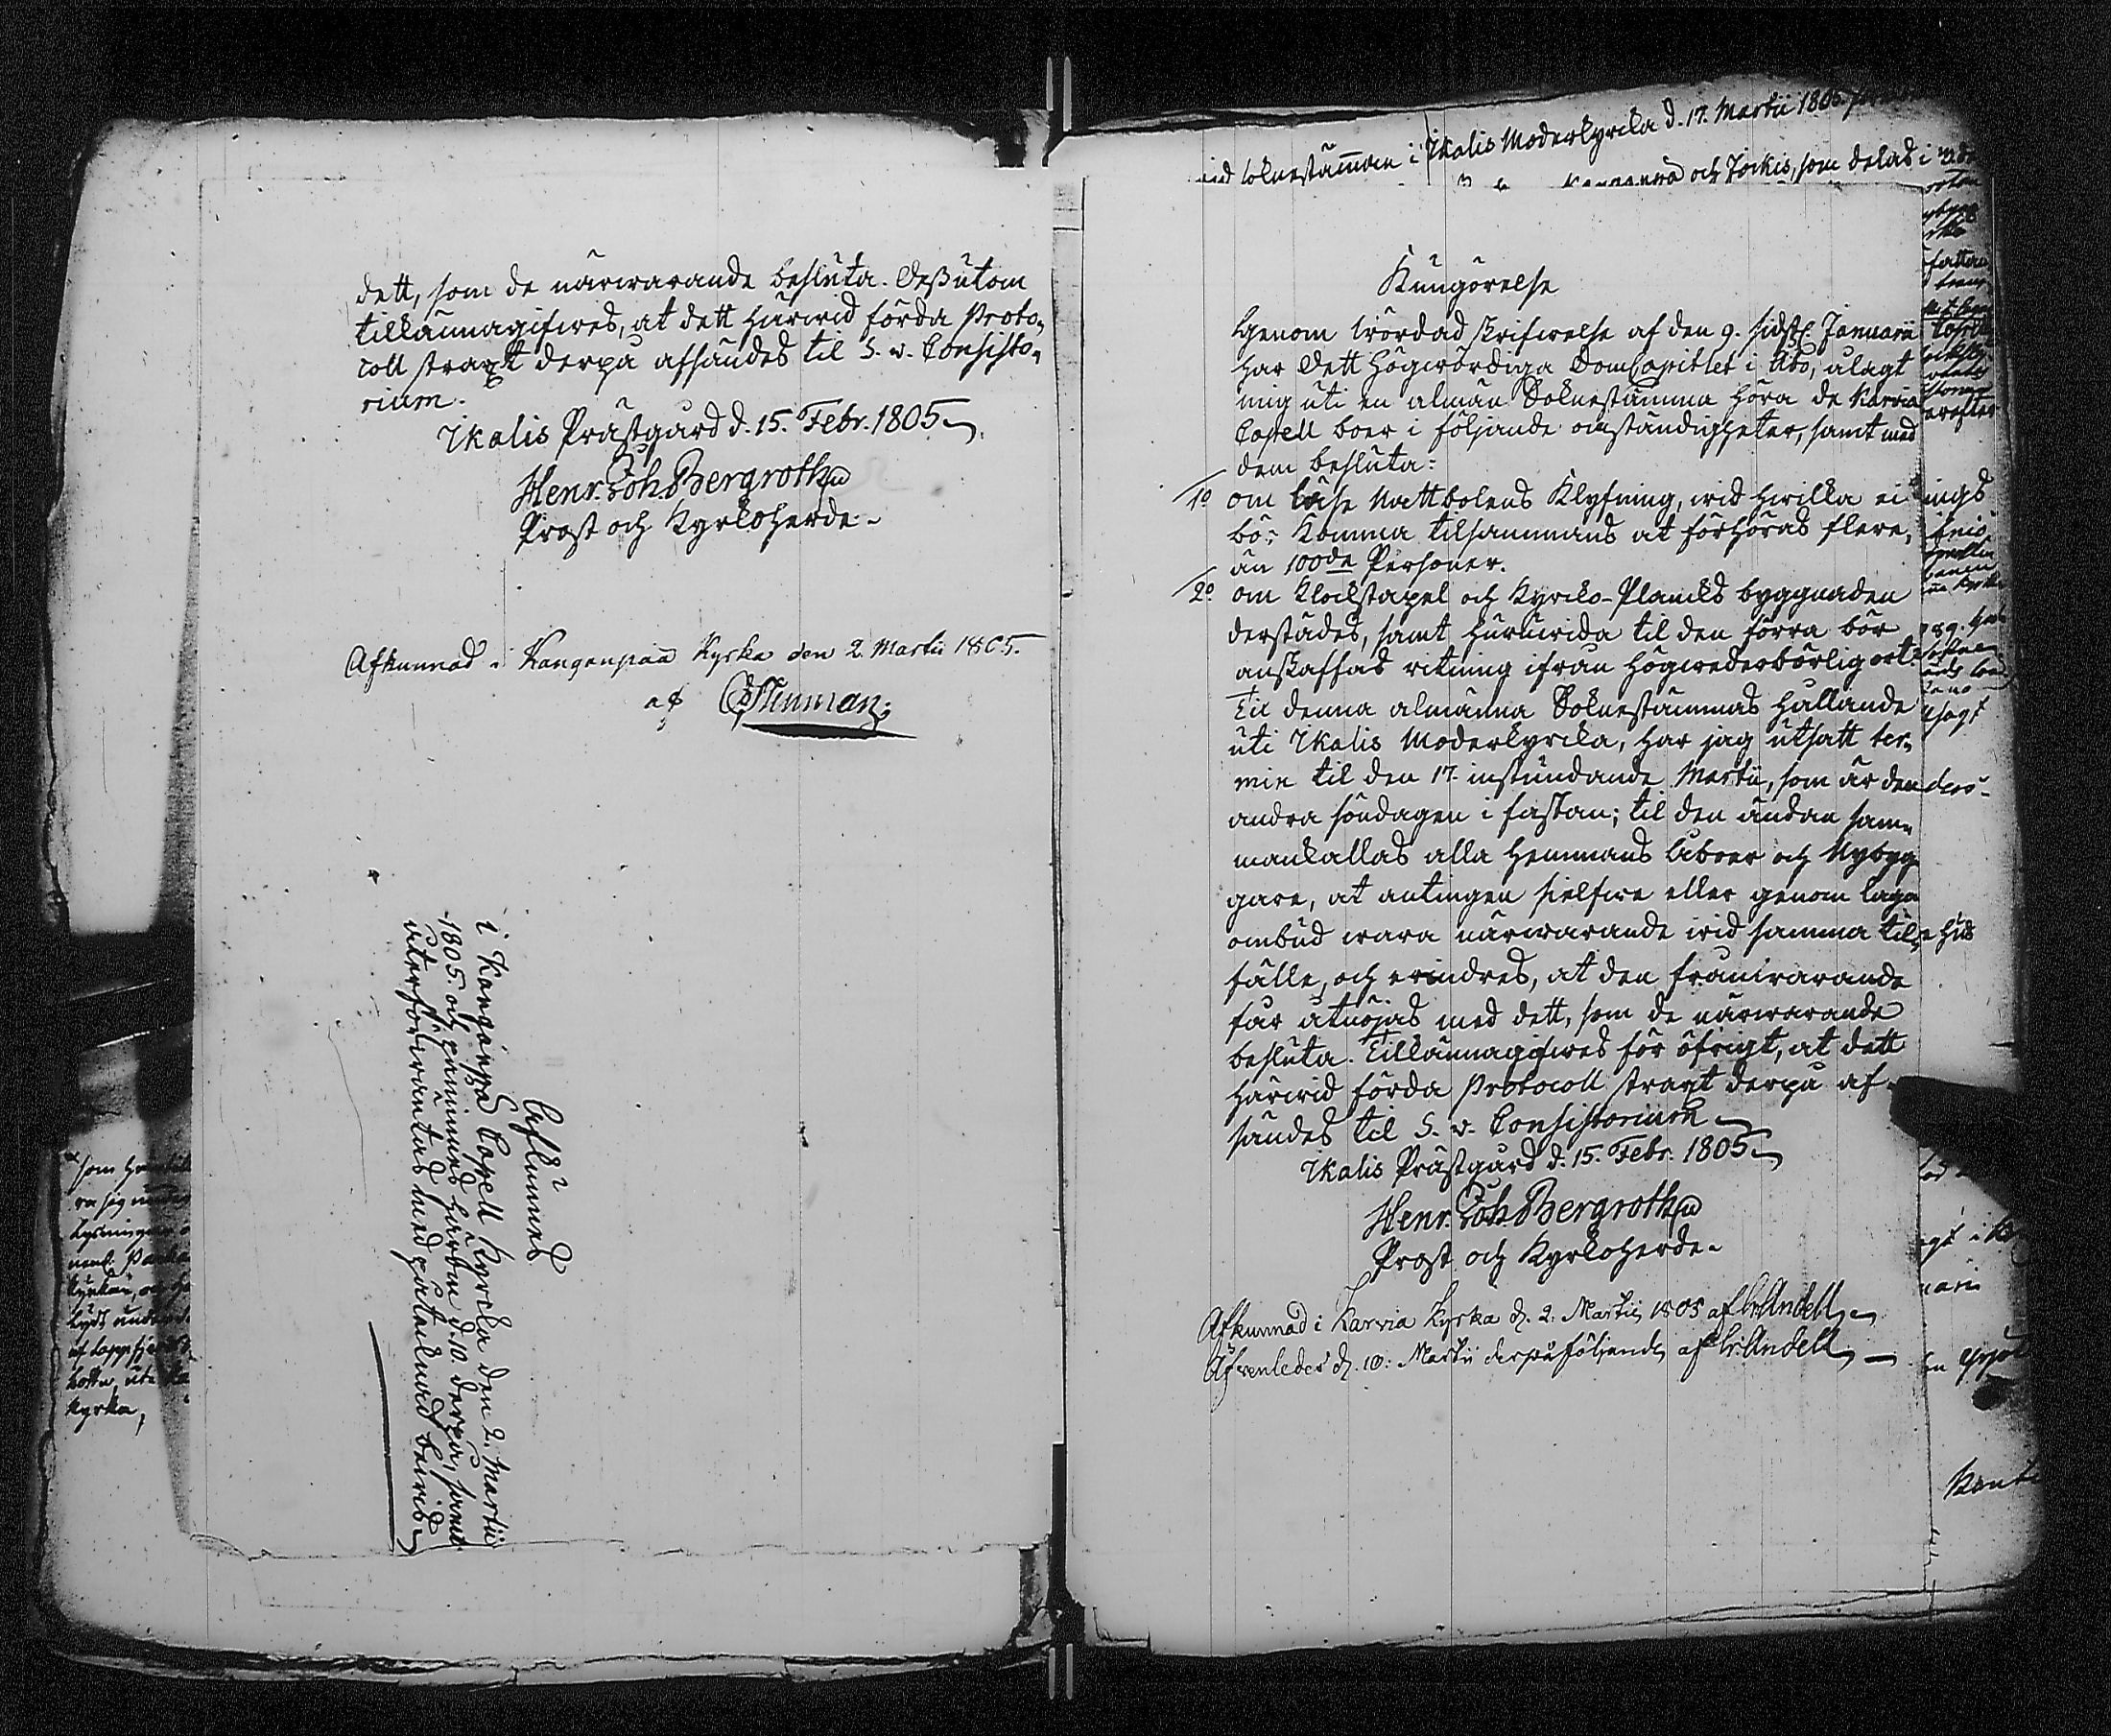 dett, som de närwarande besluta. Dessutom
tillkännagifwes, at dett härwid förda Proto-
coll straxt derpå afsändes til S. v. Consisto-
rium.
Ikalis Prästgård d. 15. Febr. 1805
Henr. Joh. Bergroth
Prost och Kyrkoherde
Afkunnad i Kangenpää Kyrka den 2. Martii 1805.
af
Afkunnes
i Kangänpää Capell Kyrcka den 2. Martii
1805. och påminnes härom d. 10. derpå, samt
återförwäntas med påteknad bewis
som
ra sig
kyrka,
wid Soknestämman i Ikalis Moderkyrcka d. 17. Martii 1805.
och Jockis, som delas i
Kungörelse
Genom wördad skrifwelse af den 9. sidstl. Januarii
har Dett Högwördiga DomCapitlet i Åbo, ålagt
mig uti en almän Soknestämma höra de Karvia
Capell boer i följande omständigheter, samt med
dem besluta:
1o om läse Matkolens Klyfning, wid hwilka ei
bör komma tilsammans at förhöras flere,
än 100de Personer.
2o om Klockstapel och Kyrcko-Plancks byggnaden
derstädes, samt huruwida til den förra bör
anskaffas ritning ifrån högwederbörlig ort.
Til denna almänna Soknestämmas hållande
uti Ikalis Moderkyrcka, har jag utsatt ter-
min til den 17. instundande Martii, som är den
andra söndagen i fastan; til den ändan sam-
mankallas alla Hemmans Åboer och Nybyg-
gare, at antingen sielfwe eller genom laga
ombud wara närwarande wid samma til-
fälle, och erindres, at den frånwarande
får åtnöjas med dett, som de närwarande
besluta. Tillkännagifwes för öfrigt, at dett
härwid förda Protocoll straxt derpå af-
sändes til S. v. Consistorium
Ikalis Prästgård d. 15. Febr. 1805
Henr. Joh. Bergroth
Prost och Kyrkoherde
Afkunnad i Karvia Kyrka d. 2. Martii 1805 af Gr. Andell
Äfvenledes d. 10: Martii derpåföljande af Gr. Andell